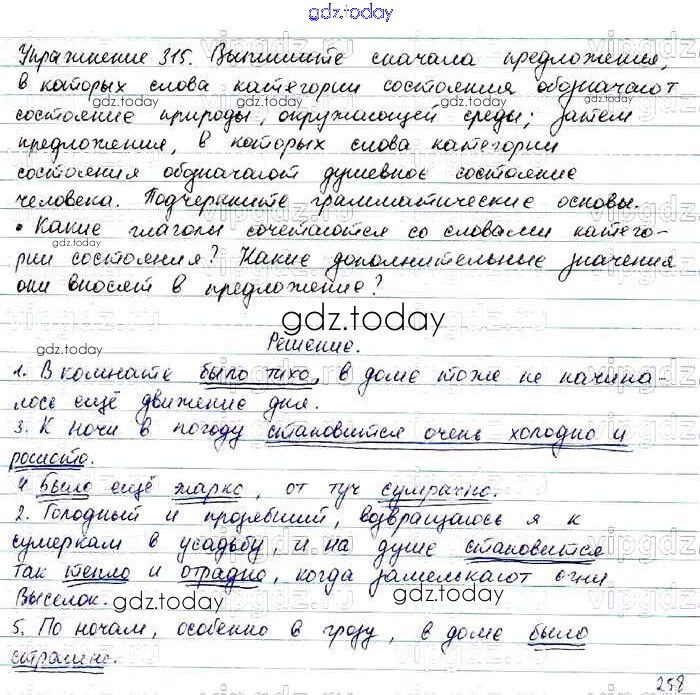 gdz.today
Упражнение 315. Выпишите сначала предложения,
в которых слова категории состояния обозначают
gdz.today gdz.today gdz.today
состояние природы, окружающей среды; затем
предложения, в которых слова категории
состояния обозначают душевное состояние
человека. Подчеркните грамматические основы.
• Какие глаголы сочетаются со словами катего-
gdz.today
рии состояния? Какие дополнительные значения
они вносят в предложение?
gdz.today
Решение.
gdz.today
1. В комнате было тихо, в доме тоже не начина-
лось ещё движение дня.
3. К ночи в погоду становится очень холодно и
росисто.
4 Было ещё жарко, от туч сумрачно.
2. Голодный и прозябший, возвращаюсь я к
сумеркам в усадьбу, и на душе становится
так тепло и отрадно, когда замелькают огни
Выселок.
gdz.today gdz.today
5. По ночам, особенно в грозу, в доме было
страшно.
258